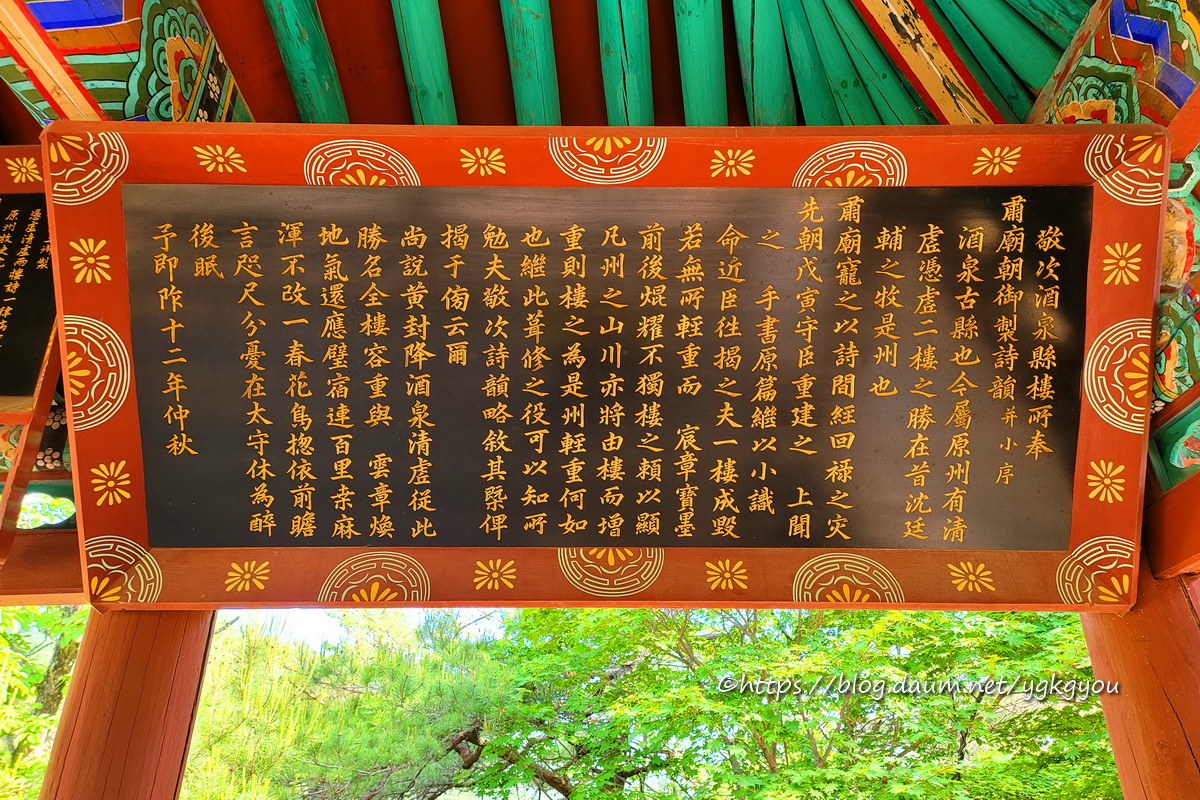 敬次酒泉縣樓所奉
肅廟朝御製詩韻 并小序
酒泉古縣也今屬原州有清
虛憑虛二樓之勝在昔沈廷
輔之牧是州也
肅廟寵之以詩間經回祿之灾
先朝戊寅守臣重建之 上聞
之 手書原篇繼以小識
命近臣往揭之夫一樓成毀
若無所輕重而 宸章寶墨
前後焜耀不獨樓之賴以顯
凡州之山川亦將由樓而增
重則樓之為是州輕重何如
也繼此葺修之役可以知所
勉夫敬次詩韻略敘其槩俾
揭于傍云爾
尚說黃封降酒泉清虛從此
勝名全樓容重與 雲章煥
地氣還應璧宿連百里桒麻
渾不改一春花鳥摠依前瞻
言咫尺分憂在太守休為醉
後眠
予即阼十二年仲秋
©https://blog.daum.net/ygkgyou